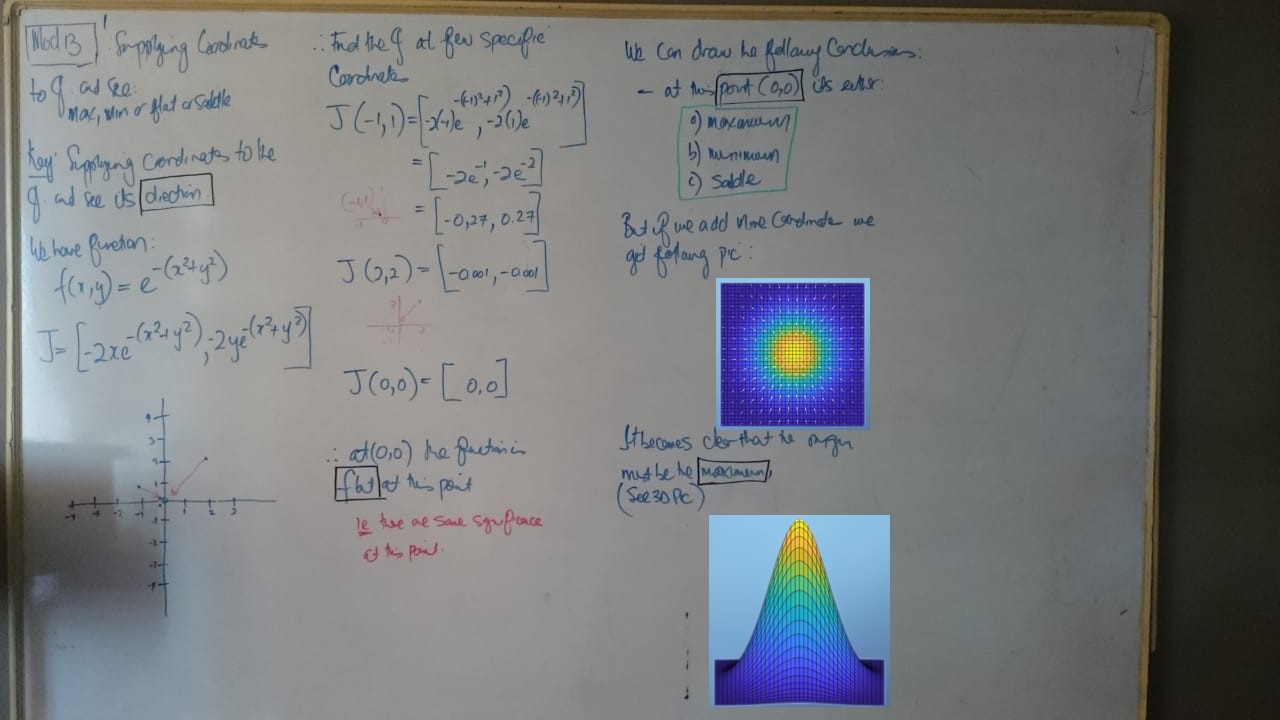 Mod 13 ! Supplying Coordinates
to J and see:
max, min or flat or saddle
Key: Supplying coordinates to the
J. and see its direction.
We have function:
f(x,y) = e^-(x²+y²)
J = [-2xe^-(x²+y²), -2ye^-(x²+y²)]
∴ Find the J at few specific
Coordinates
J(-1,1) = [-2(-1)e^-((-1)²+1²), -2(1)e^-((-1)²+1²)]
= [-2e^-1, -2e^-2]
(-1,1)
= [-0,27, 0.27]
J(2,2) = [-0.001, -0.001]
J(0,0) = [0,0]
∴ at (0,0) the function is
flat at this point
ie there are some significance
at this point.
We can draw the following conclusions:
- at this point (0,0) its either:
a) maximum
b) minimum
c) saddle
But if we add more coordinate we
get following pic:
It becomes clear that the origin
must be the maximum,
(See 3D Pic)